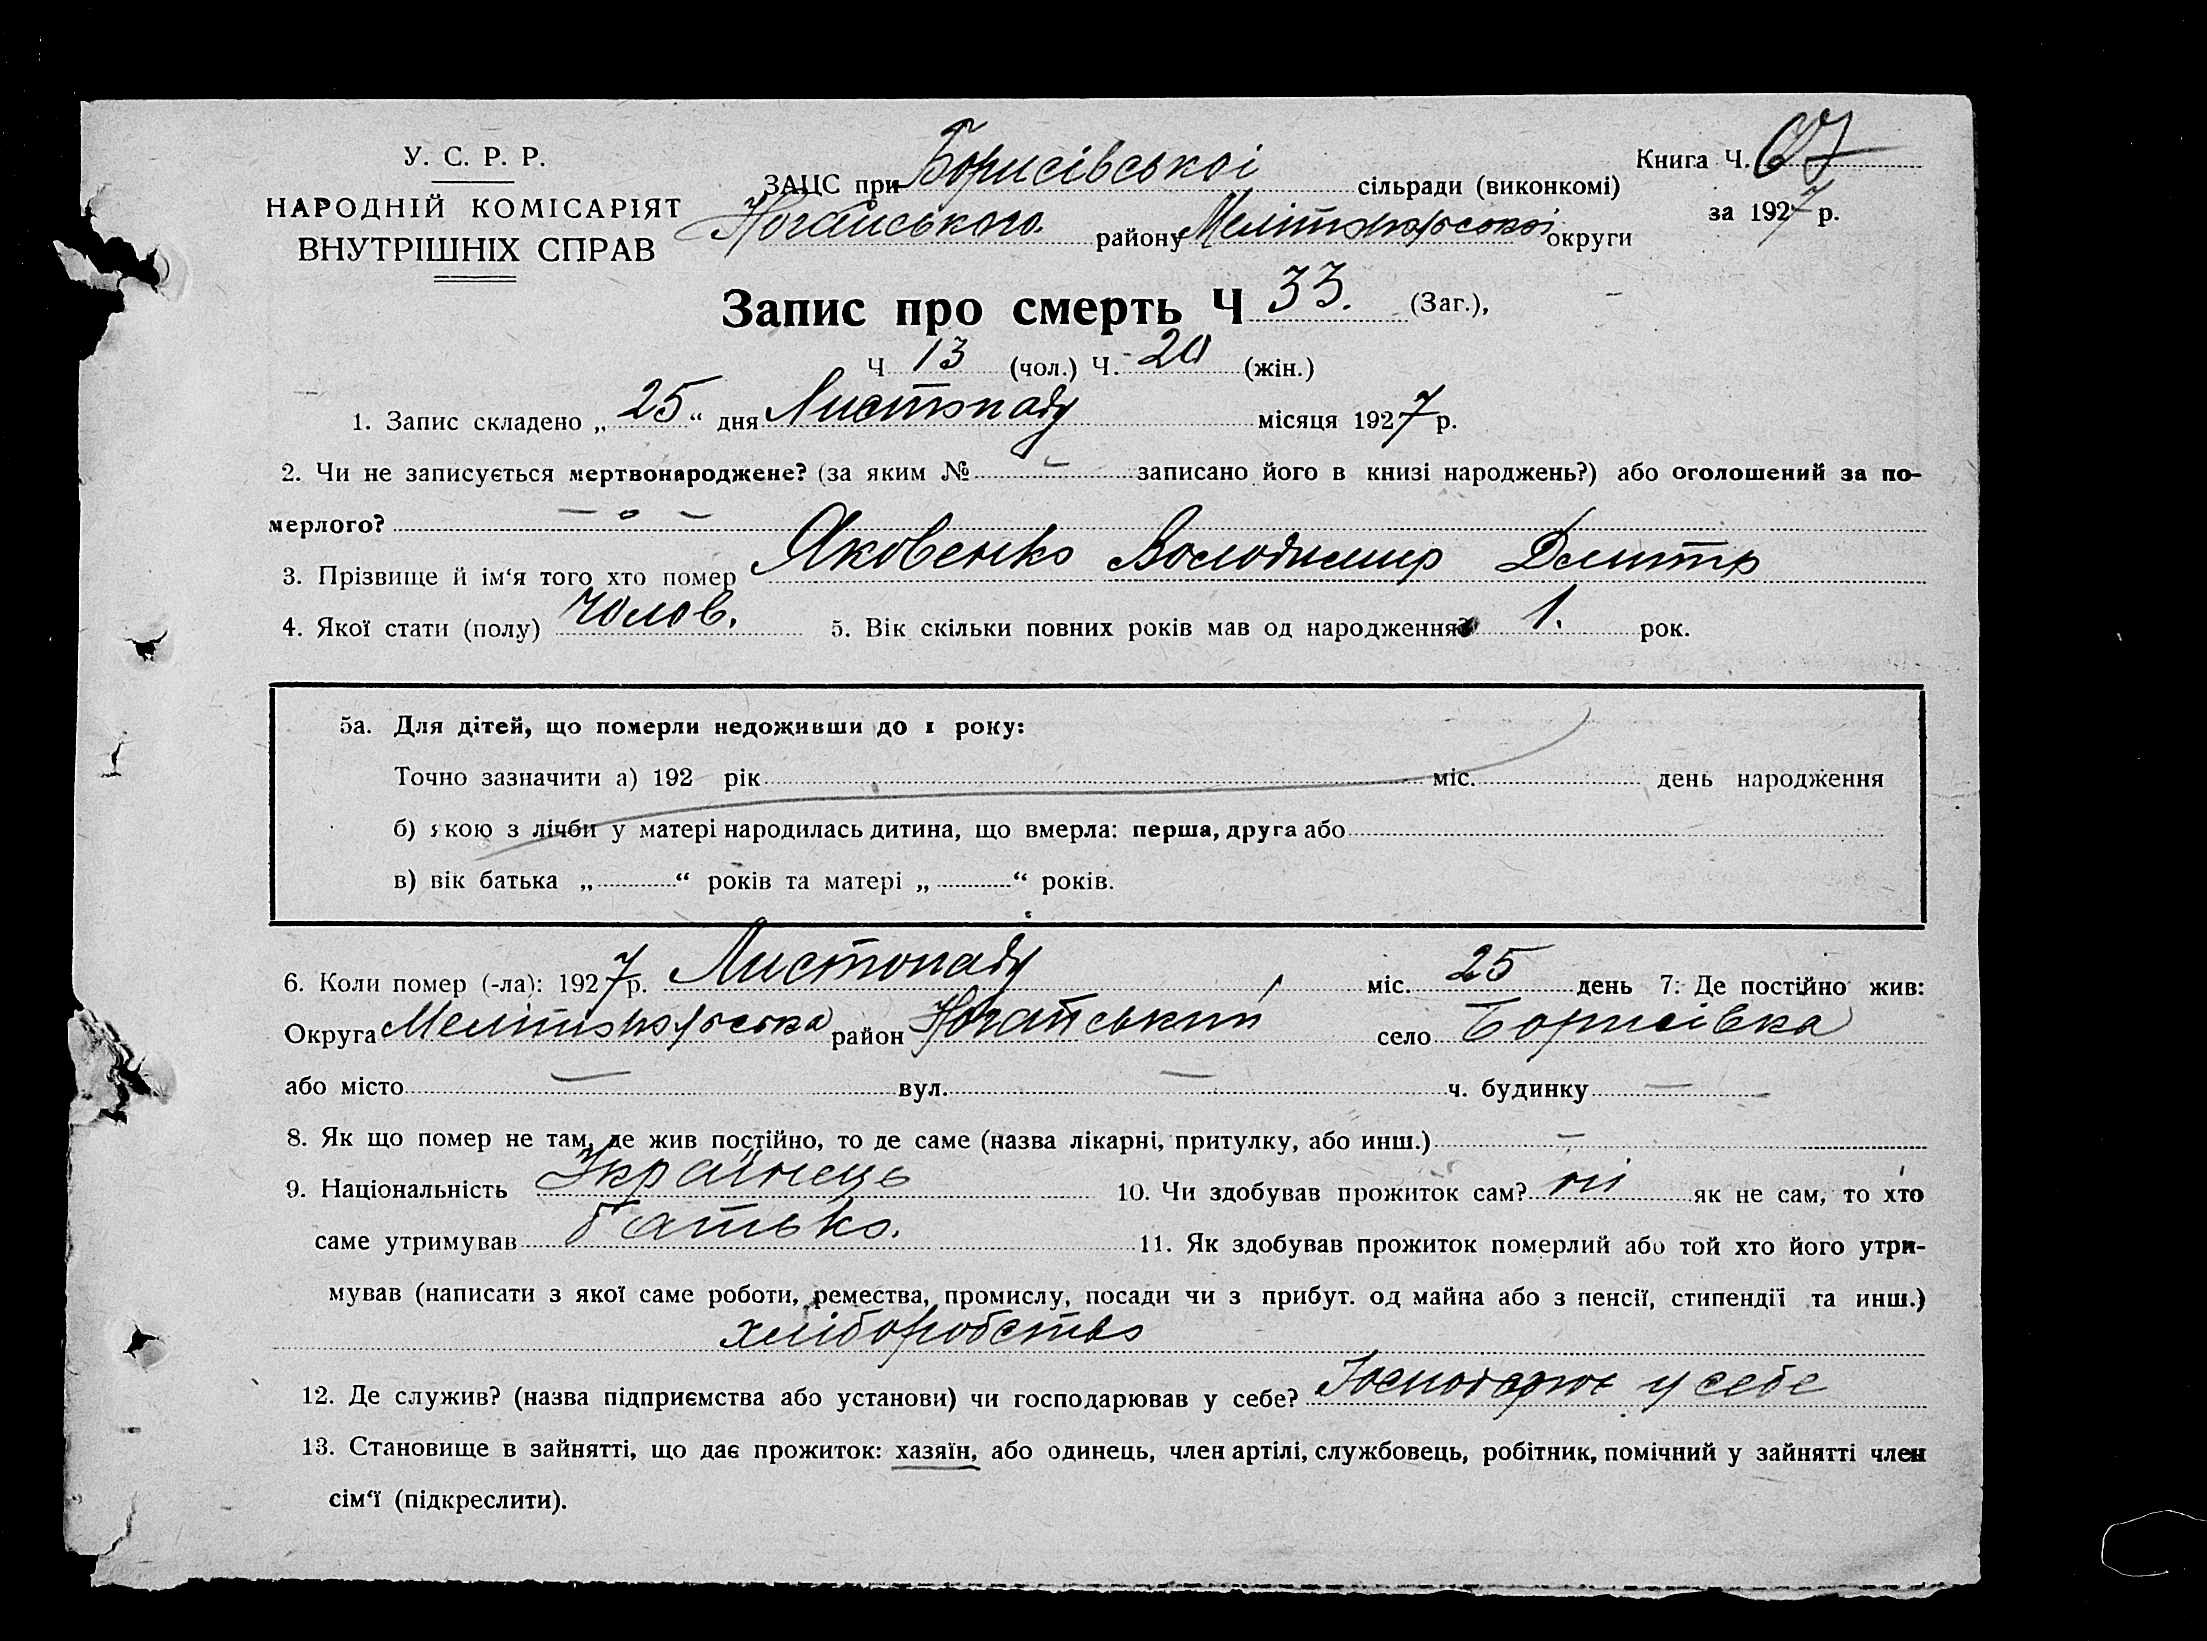 У. С. Р. Р.
НАРОДНІЙ КОМІСАРІЯТ
ВНУТРІШНІХ СПРАВ
Книга Ч. 67
ЗАЦС при Борисівської сільради (виконкомі)
за 1927 р.
Ногайського району Мелітопольської округи
Запис про смерть Ч 33. (Заг.),
Ч 13 (чол.) Ч. 20 (жін.)
1. Запис складено „25“ дня Листопаду місяця 1927 р.
2. Чи не записується мертвонароджене? (за яким № — записано його в книзі народжень?) або оголошений за по-
мерлого? — о —
3. Прізвище й ім‘я того хто помер Яковенко Володимир Дмитр
4. Якої стати (полу) чолов. 5. Вік скільки повних років мав од народження 1. рок.
5а. Для дітей, що померли недоживши до 1 року:
Точно зазначити а) 192 рік міс. день народження
б) якою з лічби у матері народилась дитина, що вмерла: перша, друга або
в) вік батька „ “ років та матері „ “ років.
6. Коли помер (-ла): 1927 р. Листопаду міс. 25 день 7: Де постійно жив:
Округа Мелітопольська район Ногайський село Борисівка
або місто — вул. — ч. будинку —
8. Як що помер не там, де жив постійно, то де саме (назва лікарні, притулку, або инш.) —
9. Національність Українець 10. Чи здобував прожиток сам? ні як не сам, то хто
саме утримував батько. 11. Як здобував прожиток померлий або той хто його утри-
мував (написати з якої саме роботи, ремества, промислу, посади чи з прибут. од майна або з пенсії, стипендії та инш.)
хліборобство
12. Де служив? (назва підприємства або установи) чи господарював у себе? Господарює у себе
13. Становище в зайнятті, що дає прожиток: хазяїн, або одинець, член артілі, службовець, робітник, помічний у зайнятті член
сім‘ї (підкреслити).